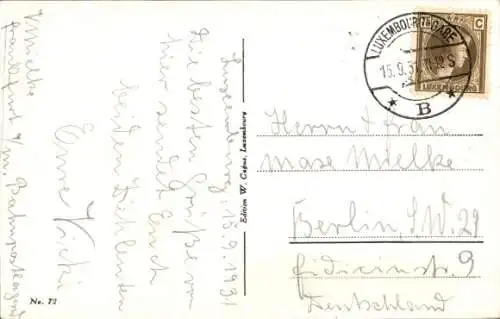 Luxemburg, 15.9.1931
Die besten Grüße von
hier sendet Euch
beiden
Eure
V. Mielke
Frankfurt a/M.
No. 72
Edition W. Capus, Luxembourg
LUXEMBOURG-GARE
15.9.31
B
C
LUXEMBOURG
Herrn & Frau
Maxe Mielke
Berlin, S.W. 29
Fidicinstr. 9
Deutschland